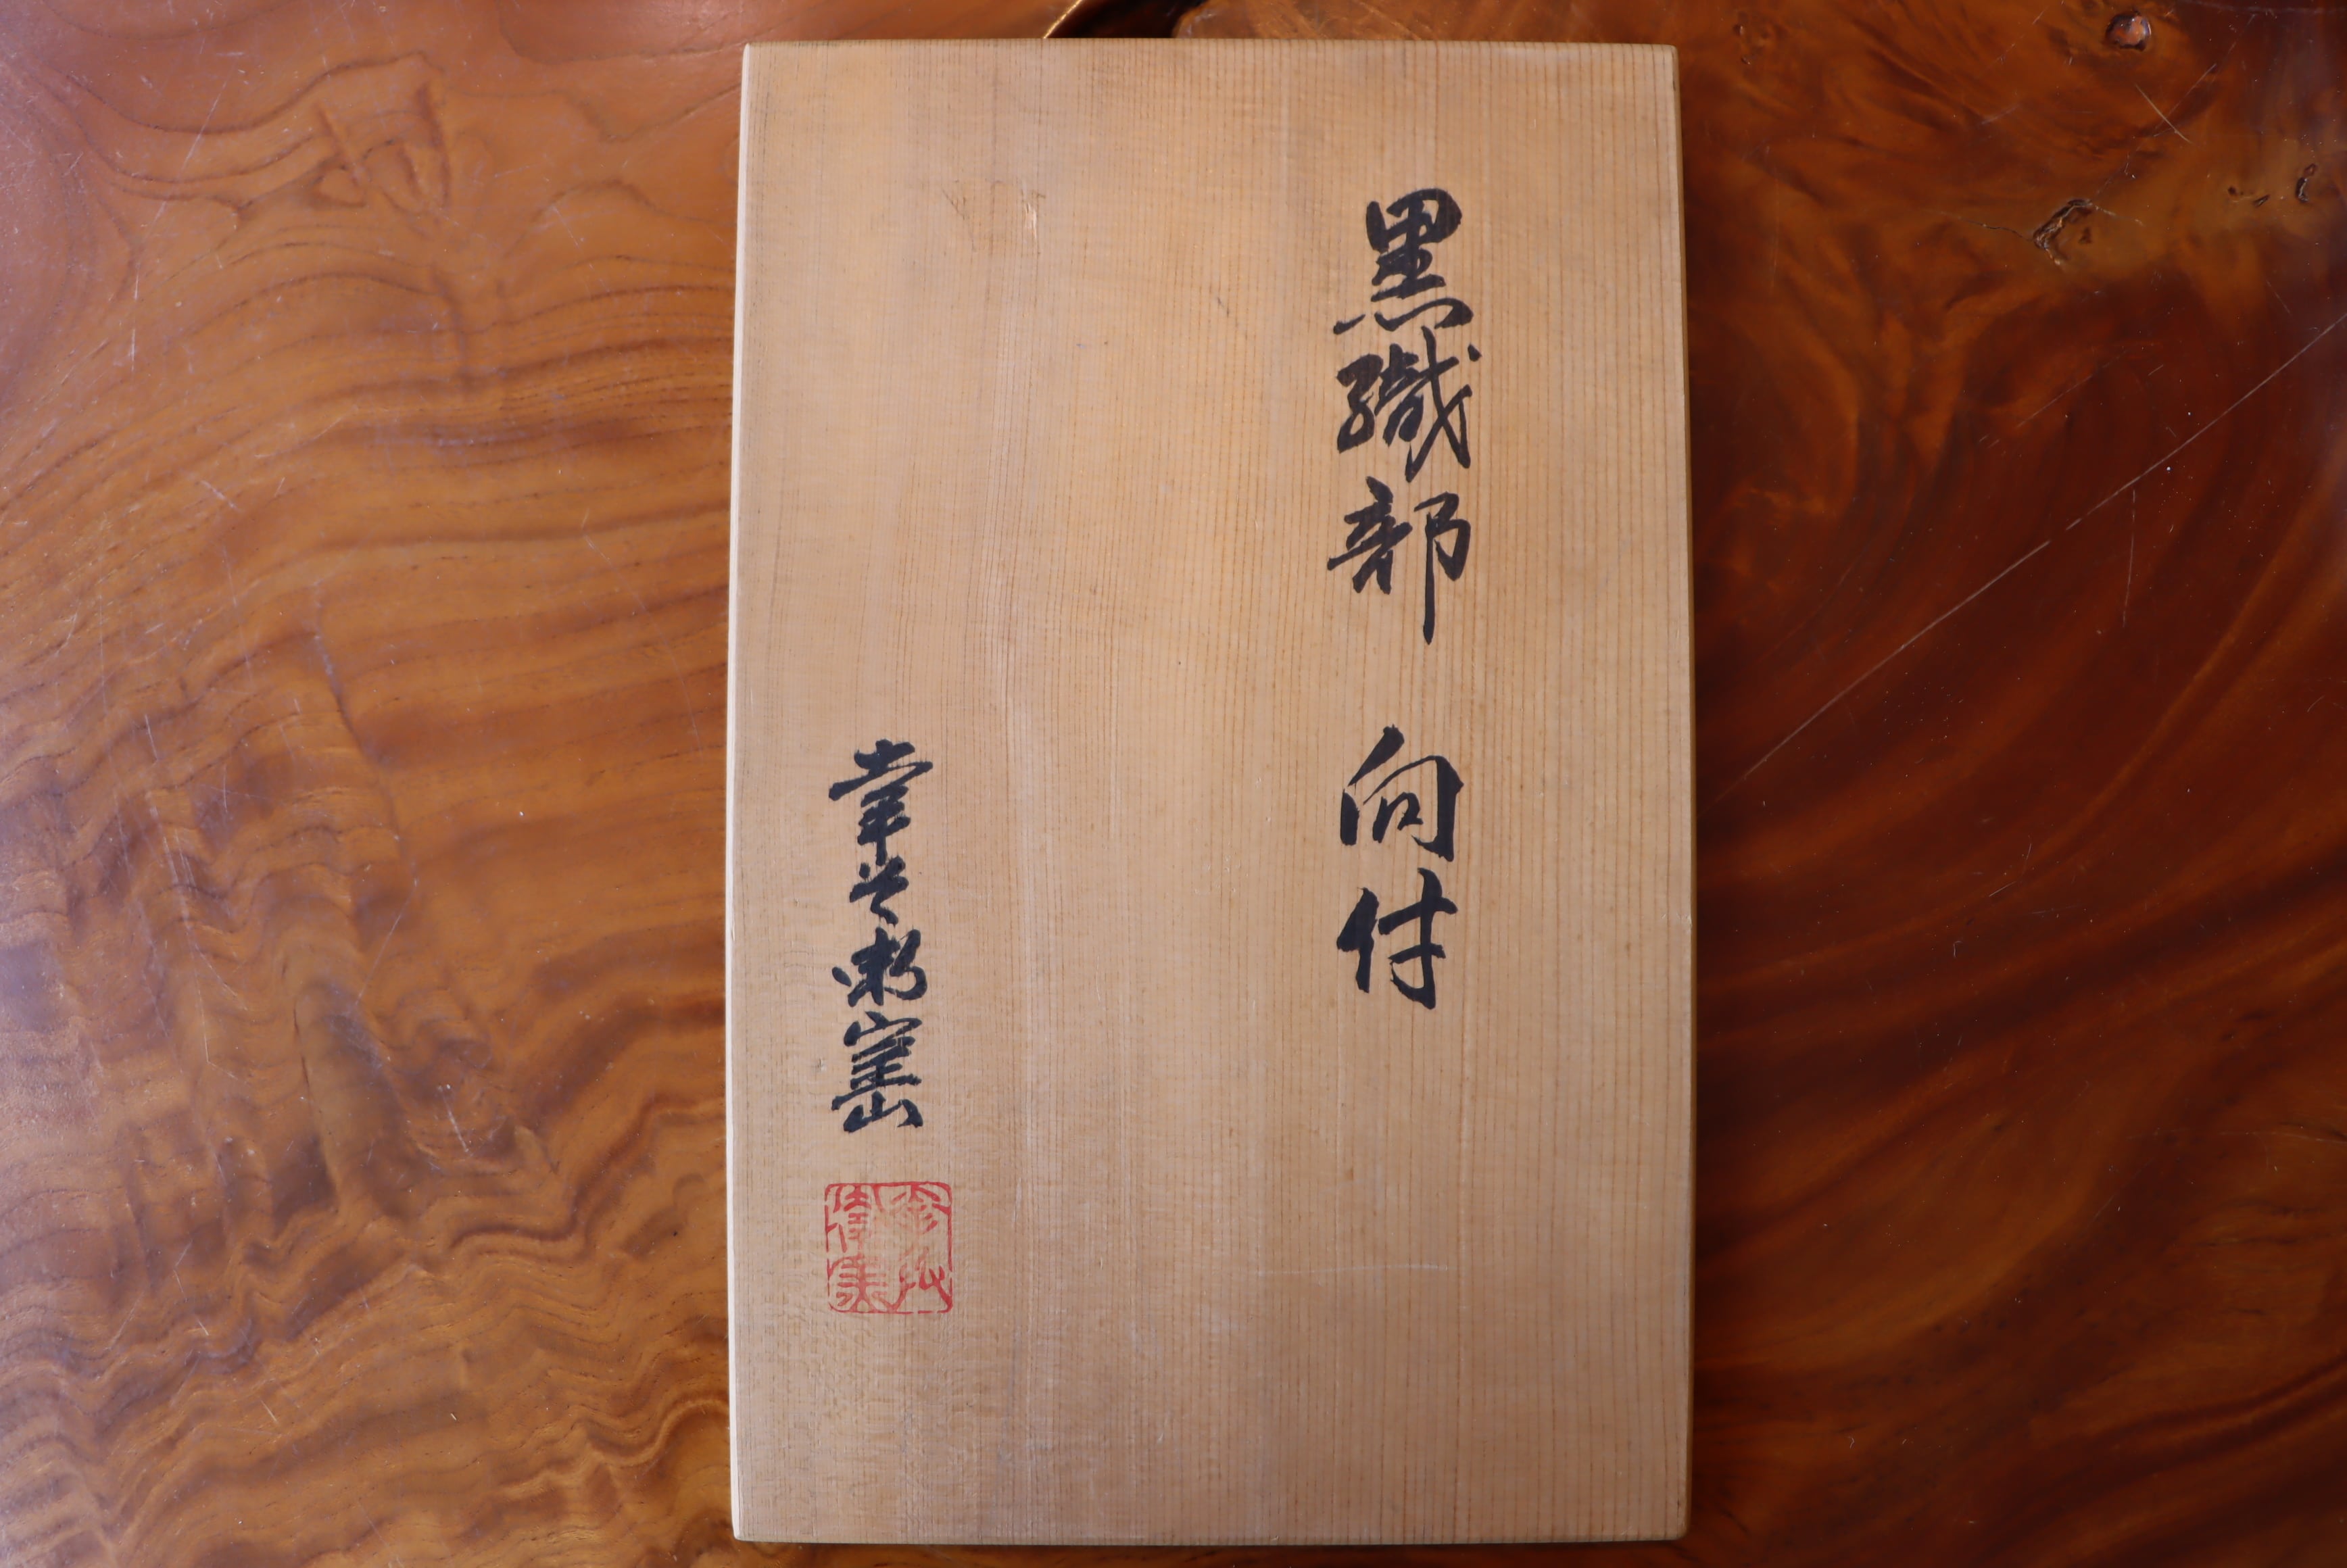 黒織部 向付
幸兵衛窯